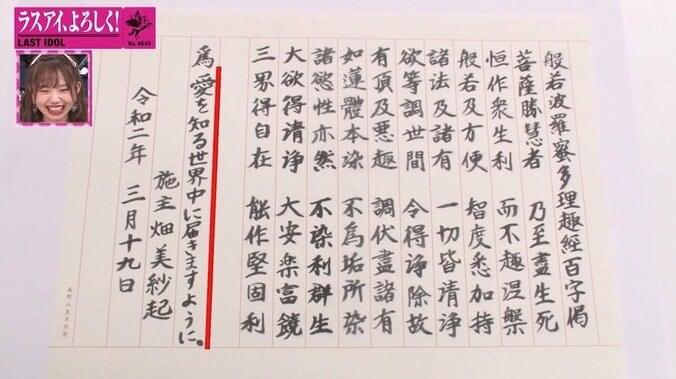 ラスアイ、よろしく!
LAST IDOL
No.4649
般若波羅蜜多理趣経百字偈
菩薩勝慧者 乃至盡生死
恒作衆生利 而不趣涅槃
般若及方便 智度悉加持
諸法及諸有 一切皆清浄
欲等調世間 令得浄除故
有頂及悪趣 調伏盡諸有
如蓮體本染 不為垢所染
諸慾性亦然 不染利群生
大欲得清浄 大安楽富饒
三界得自在 能作堅固利
為 愛を知る世界中に届きますように。
施主 畑美紗起
令和二年 三月十九日